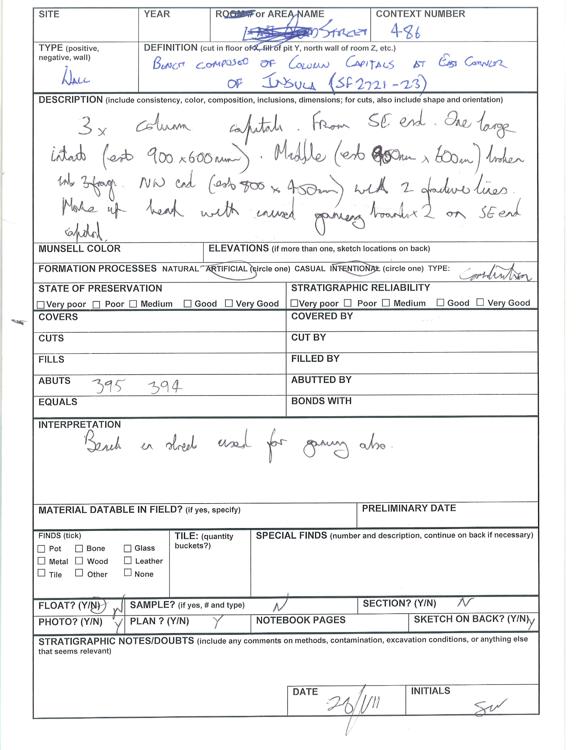 SITE YEAR ROOM # or AREA NAME CONTEXT NUMBER
STREET 486
TYPE (positive, negative, wall) DEFINITION (cut in floor of X, fill of pit Y, north wall of room Z, etc.)
WALL BENCH COMPOSED OF COLUMN CAPITALS AT EAST CORNER
OF INSULA (SF2721-23)
DESCRIPTION (include consistency, color, composition, inclusions, dimensions; for cuts, also include shape and orientation)
3 x column capitals. From SE end. One large
intact (est 900 x 600mm). Middle (est 900mm x 600m) broken
into 3 frag. NW end (est 800 x 450mm) with 2 fracture lines.
Make up bench with incised gaming boards x 2 on SE end
capital.
MUNSELL COLOR ELEVATIONS (if more than one, sketch locations on back)
FORMATION PROCESSES NATURAL ARTIFICIAL (circle one) CASUAL INTENTIONAL (circle one) TYPE: Construction
STATE OF PRESERVATION STRATIGRAPHIC RELIABILITY
Very poor Poor Medium Good Very Good Very poor Poor Medium Good Very Good
COVERS COVERED BY
CUTS CUT BY
FILLS FILLED BY
ABUTS 395 394 ABUTTED BY
EQUALS BONDS WITH
INTERPRETATION
Bench in street used for gaming also.
MATERIAL DATABLE IN FIELD? (if yes, specify) PRELIMINARY DATE
FINDS (tick) TILE: (quantity buckets?) SPECIAL FINDS (number and description, continue on back if necessary)
Pot Bone Glass
Metal Wood Leather
Tile Other None
FLOAT? (Y/N) N SAMPLE? (if yes, # and type) N SECTION? (Y/N) N
PHOTO? (Y/N) Y PLAN ? (Y/N) Y NOTEBOOK PAGES SKETCH ON BACK? (Y/N) y
STRATIGRAPHIC NOTES/DOUBTS (include any comments on methods, contamination, excavation conditions, or anything else
that seems relevant)
DATE INITIALS